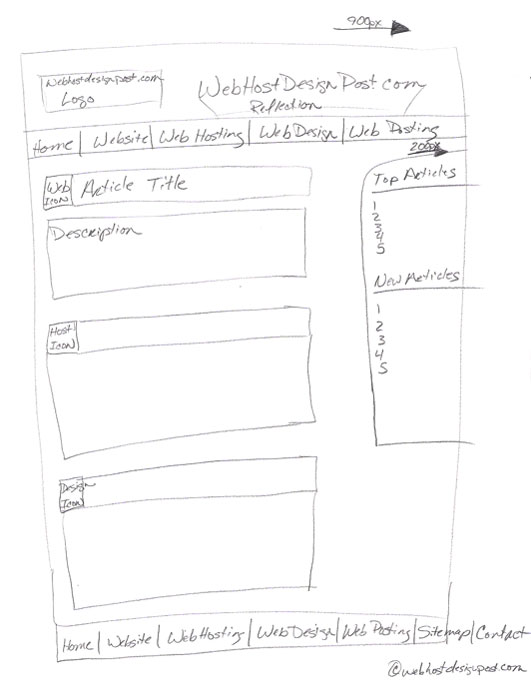 900px
Webhostdesignpost.com
Logo
WebHostDesignPost.com
Reflection
Home | Website | Web Hosting | Web Design | Web Posting
200px
Web
Icon
Article Title
Description
Top Articles
1
2
3
4
5
New Articles
1
2
3
4
5
Host
Icon
Design
Icon
Home | Website | WebHosting | WebDesign | Web Posting | Sitemap | Contact
©webhostdesignpost.com